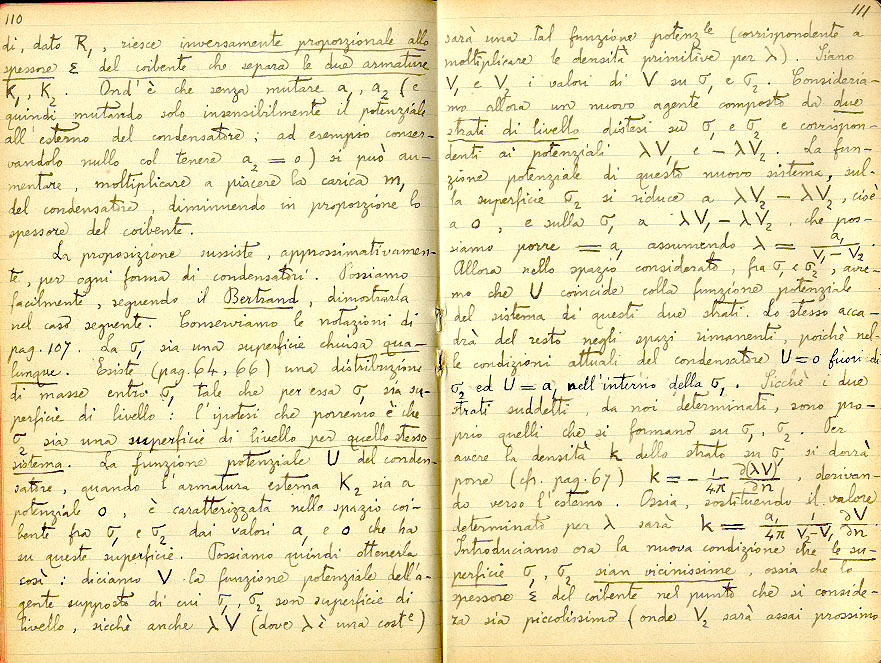 110
di, dato R₁, riesce inversamente proporzionale allo
spessore ε del coibente che separa le due armature
K₁, K₂. Ond'è che senza mutare a₁, a₂ (e
quindi mutando solo insensibilmente il potenziale
all'esterno del condensatore; ad esempio conser-
vandolo nullo col tenere a₂ = 0) si può au-
mentare, moltiplicare a piacere la carica m₁
del condensatore, diminuendo in proporzione lo
spessore del coibente.
La proposizione sussiste, approssimativamen-
te, per ogni forma di condensatori. Possiamo
facilmente, seguendo il Bertrand, dimostrarla
nel caso seguente. Conserviamo le notazioni di
pag. 107. La σ₁ sia una superficie chiusa qua-
lunque. Esiste (pag. 64, 66) una distribuzione
di masse entro σ₁ tale che per essa σ₁ sia su-
perficie di livello: l'ipotesi che porremo è che
σ₂ sia una superficie di livello per quello stesso
sistema. La funzione potenziale U del conden-
satore, quando l'armatura esterna K₂ sia a
potenziale 0, è caratterizzata nello spazio coi-
bente fra σ₁ e σ₂ dai valori a₁ e 0 che ha
su queste superficie. Possiamo quindi ottenerla
così: diciamo V la funzione potenziale dell'a-
gente supposto di cui σ₁, σ₂ son superficie di
livello, sicchè anche λV (dove λ è una costᵉ)
111
sarà una tal funzione potenzˡᵉ (corrispondente a
moltiplicare le densità primitive per λ). Siano
V₁ e V₂ i valori di V su σ₁ e σ₂. Consideria-
mo allora un nuovo agente composto da due
strati di livello distesi su σ₁ e σ₂ e corrispon-
denti ai potenziali λV₁ e −λV₂. La fun-
zione potenziale di questo nuovo sistema, sul-
la superficie σ₂ si riduce a λV₂ − λV₂, cioè
a 0, e sulla σ₁ a λV₁ − λV₂, che pos-
siamo porre = a₁ assumendo λ = a₁/(V₁ − V₂).
Allora nello spazio considerato, fra σ₁ e σ₂, avre-
mo che U coincide colla funzione potenziale
del sistema di questi due strati. Lo stesso acca-
drà del resto negli spazi rimanenti, poichè nel-
le condizioni attuali del condensatore U = 0 fuori di
σ₂ ed U = a₁ nell'interno della σ₁. Sicchè i due
strati suddetti, da noi determinati, sono pro-
prio quelli che si formano su σ₁, σ₂. Per
avere la densità k dello strato su σ₁ si dovrà
porre (cfr. pag. 67) k = − 1/4π ∂(λV)/∂n, derivan-
do verso l'esterno. Ossia, sostituendo il valore
determinato per λ sarà k = a₁/4π 1/(V₂ − V₁) ∂V/∂n.
Introduciamo ora la nuova condizione che le su-
perficie σ₁, σ₂ sian vicinissime, ossia che lo
spessore ε del coibente nel punto che si conside-
ra sia piccolissimo (onde V₂ sarà assai prossimo